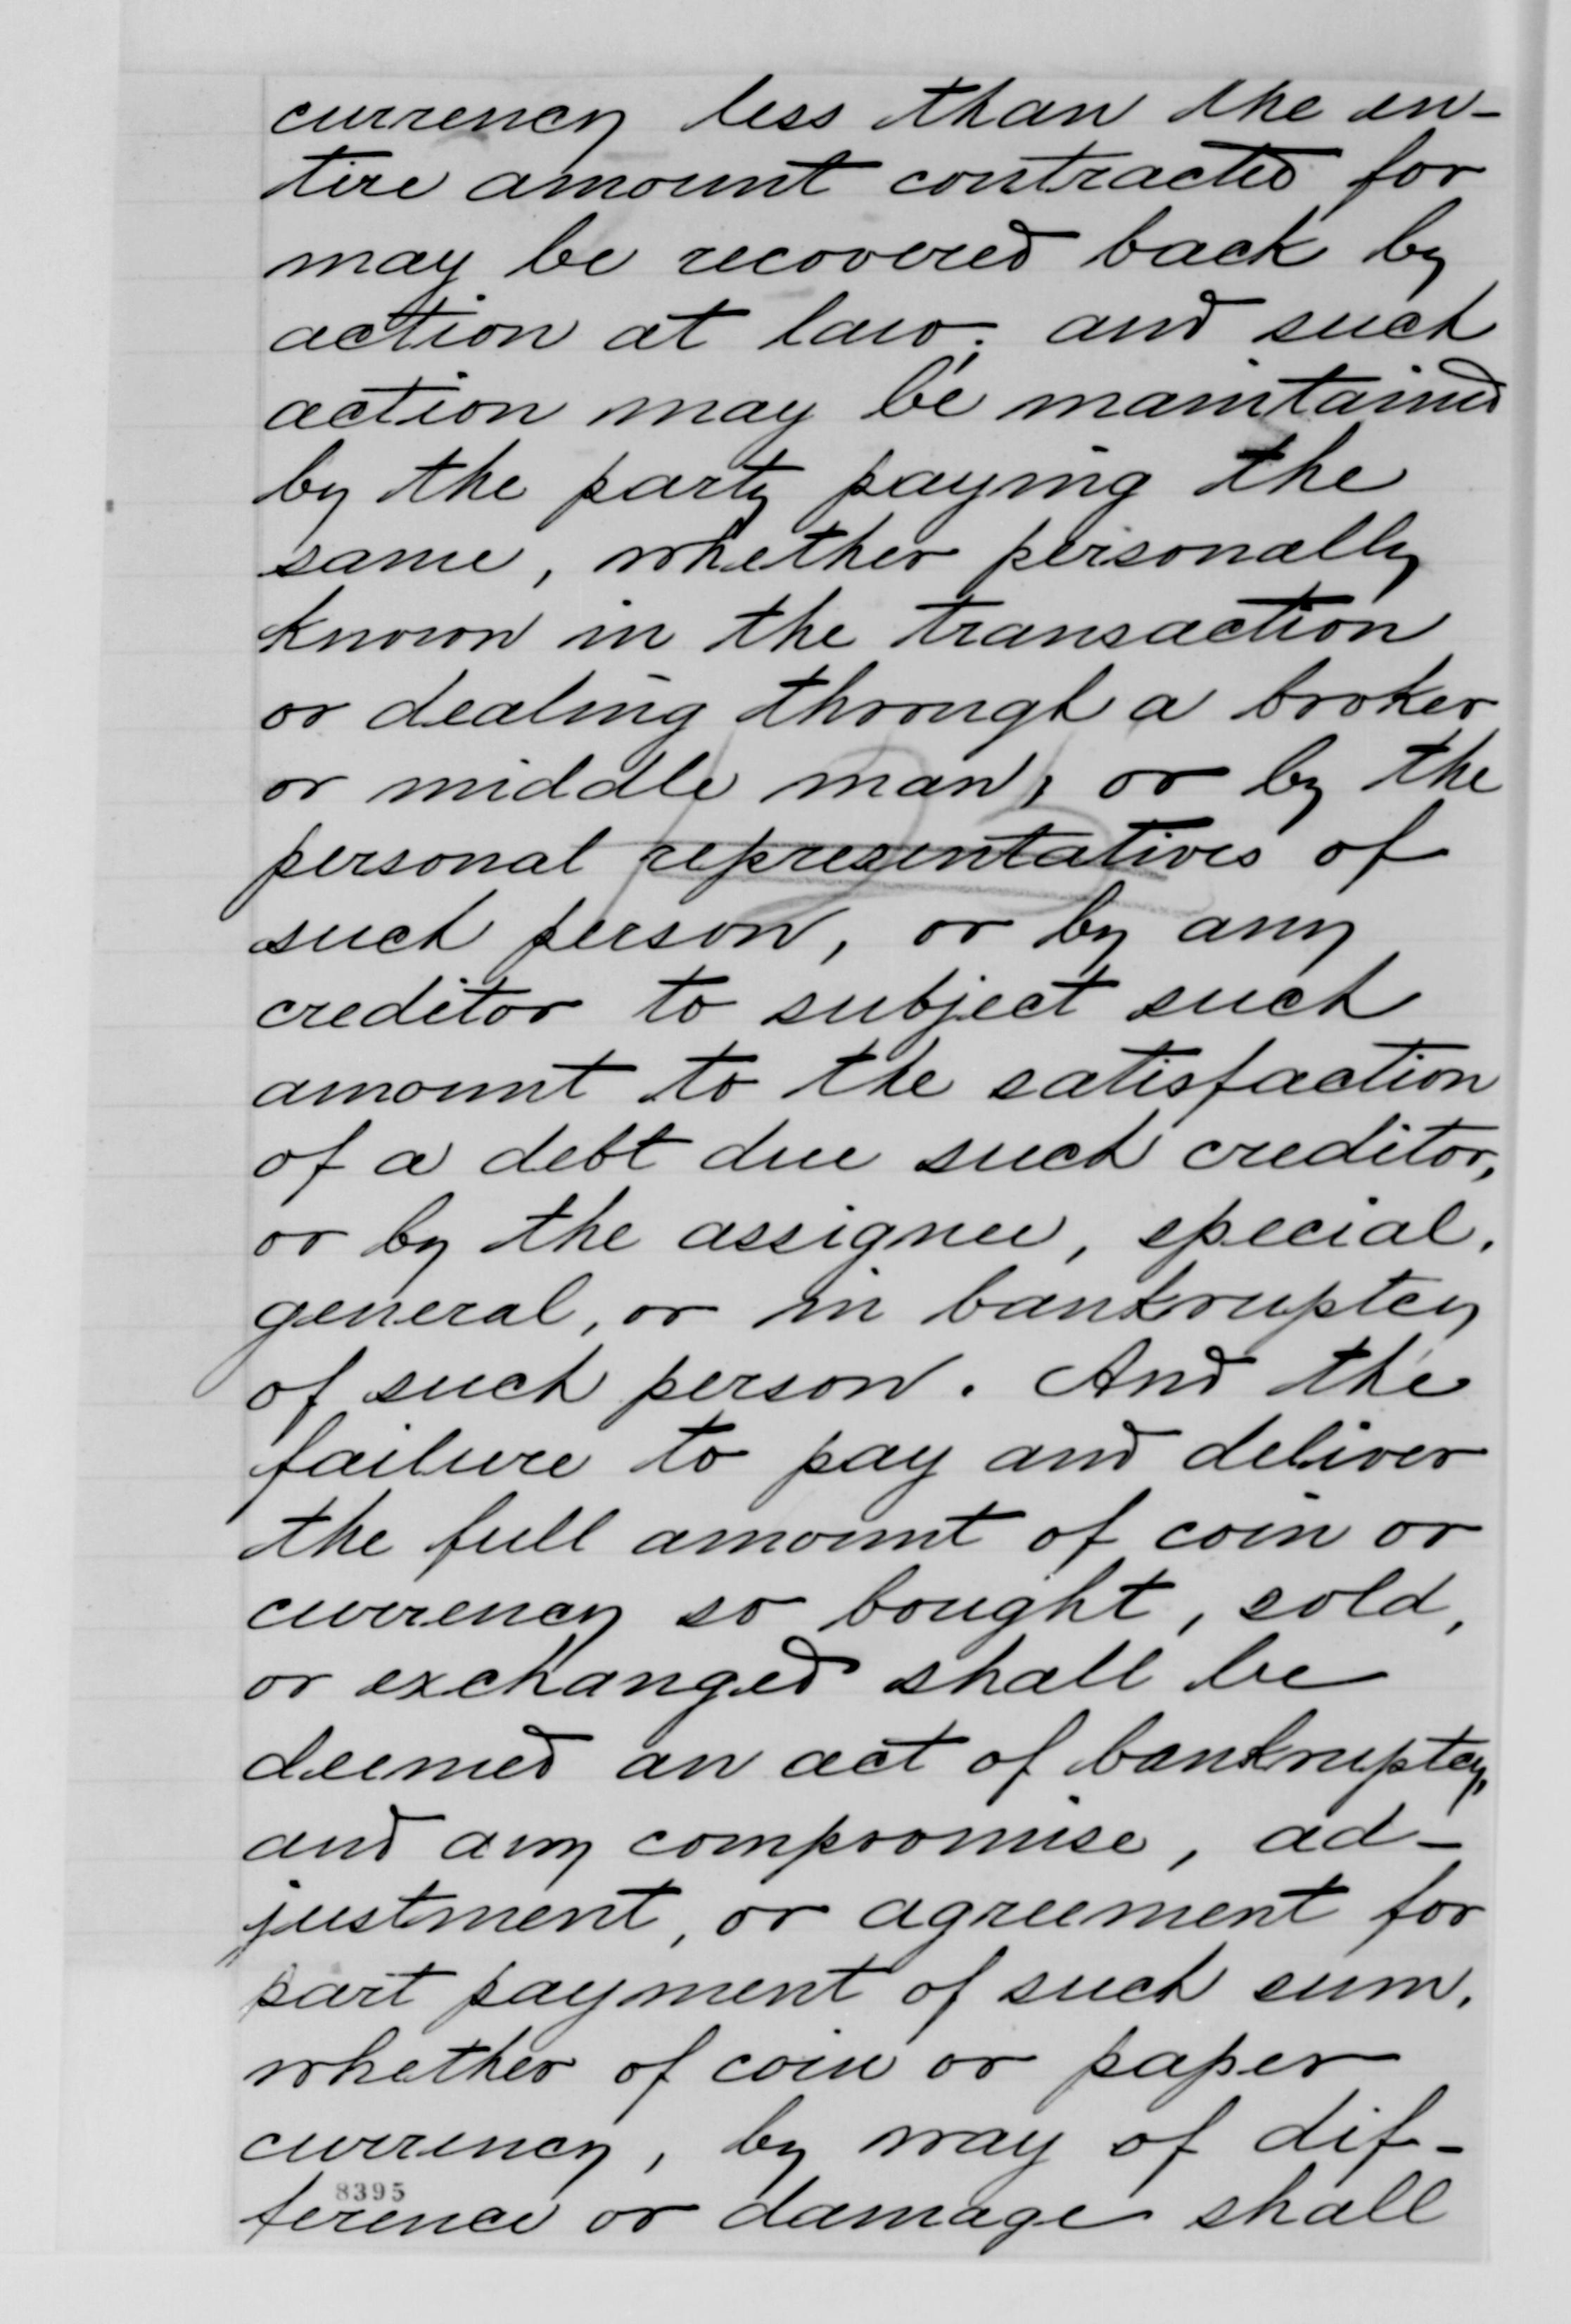 currency less than the en-
tire amount contracted for
may be recovered back by
action at law; and such
action may be maintained
by the party paying the
same, whether personally
known in the transaction
or dealing through a broker
or middle man, or by the
personal representatives of
such person, or by any
creditor to subject such
amount to the satisfaction
of a debt due such creditor,
or by the assignee, special,
general, or in bankruptcy
of such person. And the
failure to pay and deliver
the full amount of coin or
currency so bought, sold,
or exchanged shall be
deemed an act of bankruptcy,
and any compromise, ad-
justment, or agreement for
part payment of such sum,
whether of coin or paper
currency, by way of dif-
8395
ference or damage shall